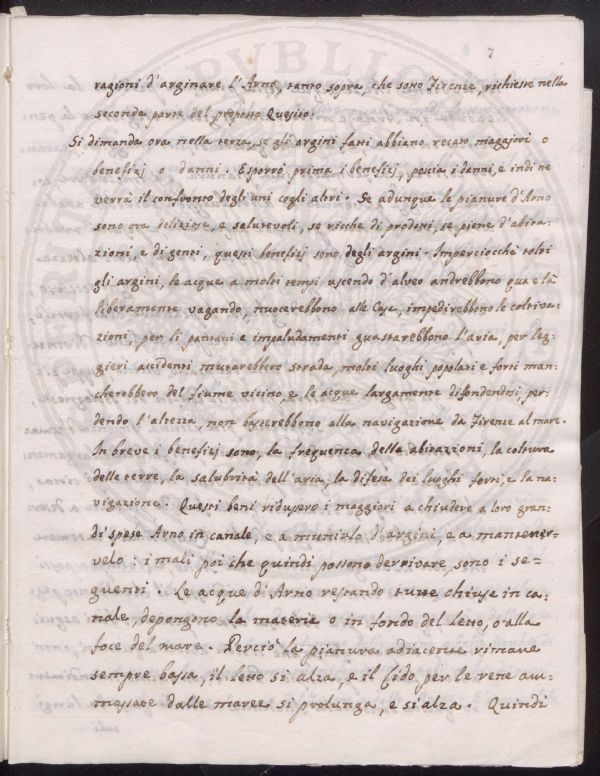 7
ragioni d'arginare l'Arno, tanto sopra, che sotto Firenze, richieste nella
seconda parte del proposto Quesito.
Si dimanda ora nella terza, se gli argini fatti abbiano recato maggiori o
benefizj o danni. Esporrò prima i benefizj, poscia i danni, e indi ne
verrà il confronto degli uni cogli altri. Se adunque le pianure d'Arno
sono ora deliziose, e salutevoli, se ricche di prodotti, se piene d'abita:
zioni, e di genti, questi benefizj sono degli argini. Imperciocchè tolti
gli argini, le acque a molti tempi uscendo d'alveo andrebbono qua e là
liberamente vagando, nuocerebbono alle Case, impedirebbono le coltiva:
zioni, per li pantani e impaludamenti guastarebbono l'aria, per leg:
gieri accidenti mutarebbero strada, molti luoghi popolati e forti man:
cherebbero del fiume vicino, e le acque largamente difondendosi, per:
dendo l'altezza, non basterebbono alla navigazione da Firenze al mare.
In breve i benefizj sono, la frequenza delle abitazioni, la coltura
delle terre, la salubrità dell'aria, la difesa dei luoghi forti, e la na:
vigazione. Questi beni ridussero i maggiori a chiudere a loro gran:
di spese Arno in canale, e a munirlo d'argini, e a mantener:
velo: i mali poi che quindi possono derrivare, sono i se:
guenti. Le acque d'Arno restando tutte chiuse in ca:
nale, depongono la materia o in fondo del letto, o alla
foce del mare. Perciò la pianura adiacente rimane
sempre bassa, il letto si alza, e il lido per le rene am:
massate dalle maree si prolunga, e si alza. Quindi